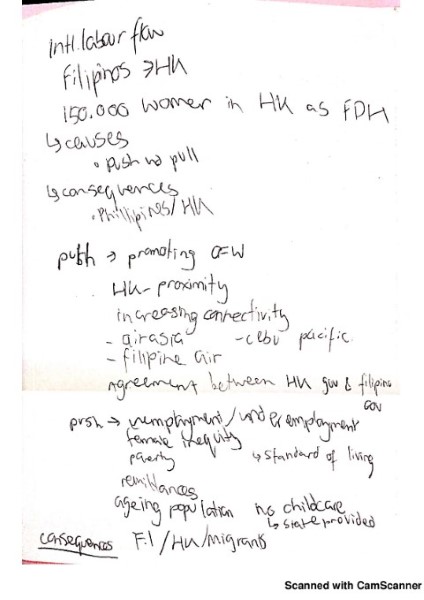 intl. labour flow
Filipinos → HK
150.000 women in HK as FDH
↳ causes
• push no pull
↳ consequences
• Phillipinos/HK
push → promoting OFW
HK - proximity
increasing connectivity
- airasia - cebu pacific
- filipine air
agreement between HK gov & filipino gov
push → unemployment/underemployment
female inequity
poverty ↳ standard of living
remittances
ageing population no childcare
↳ state provided
consequences F.I/HK/migrants
Scanned with CamScanner